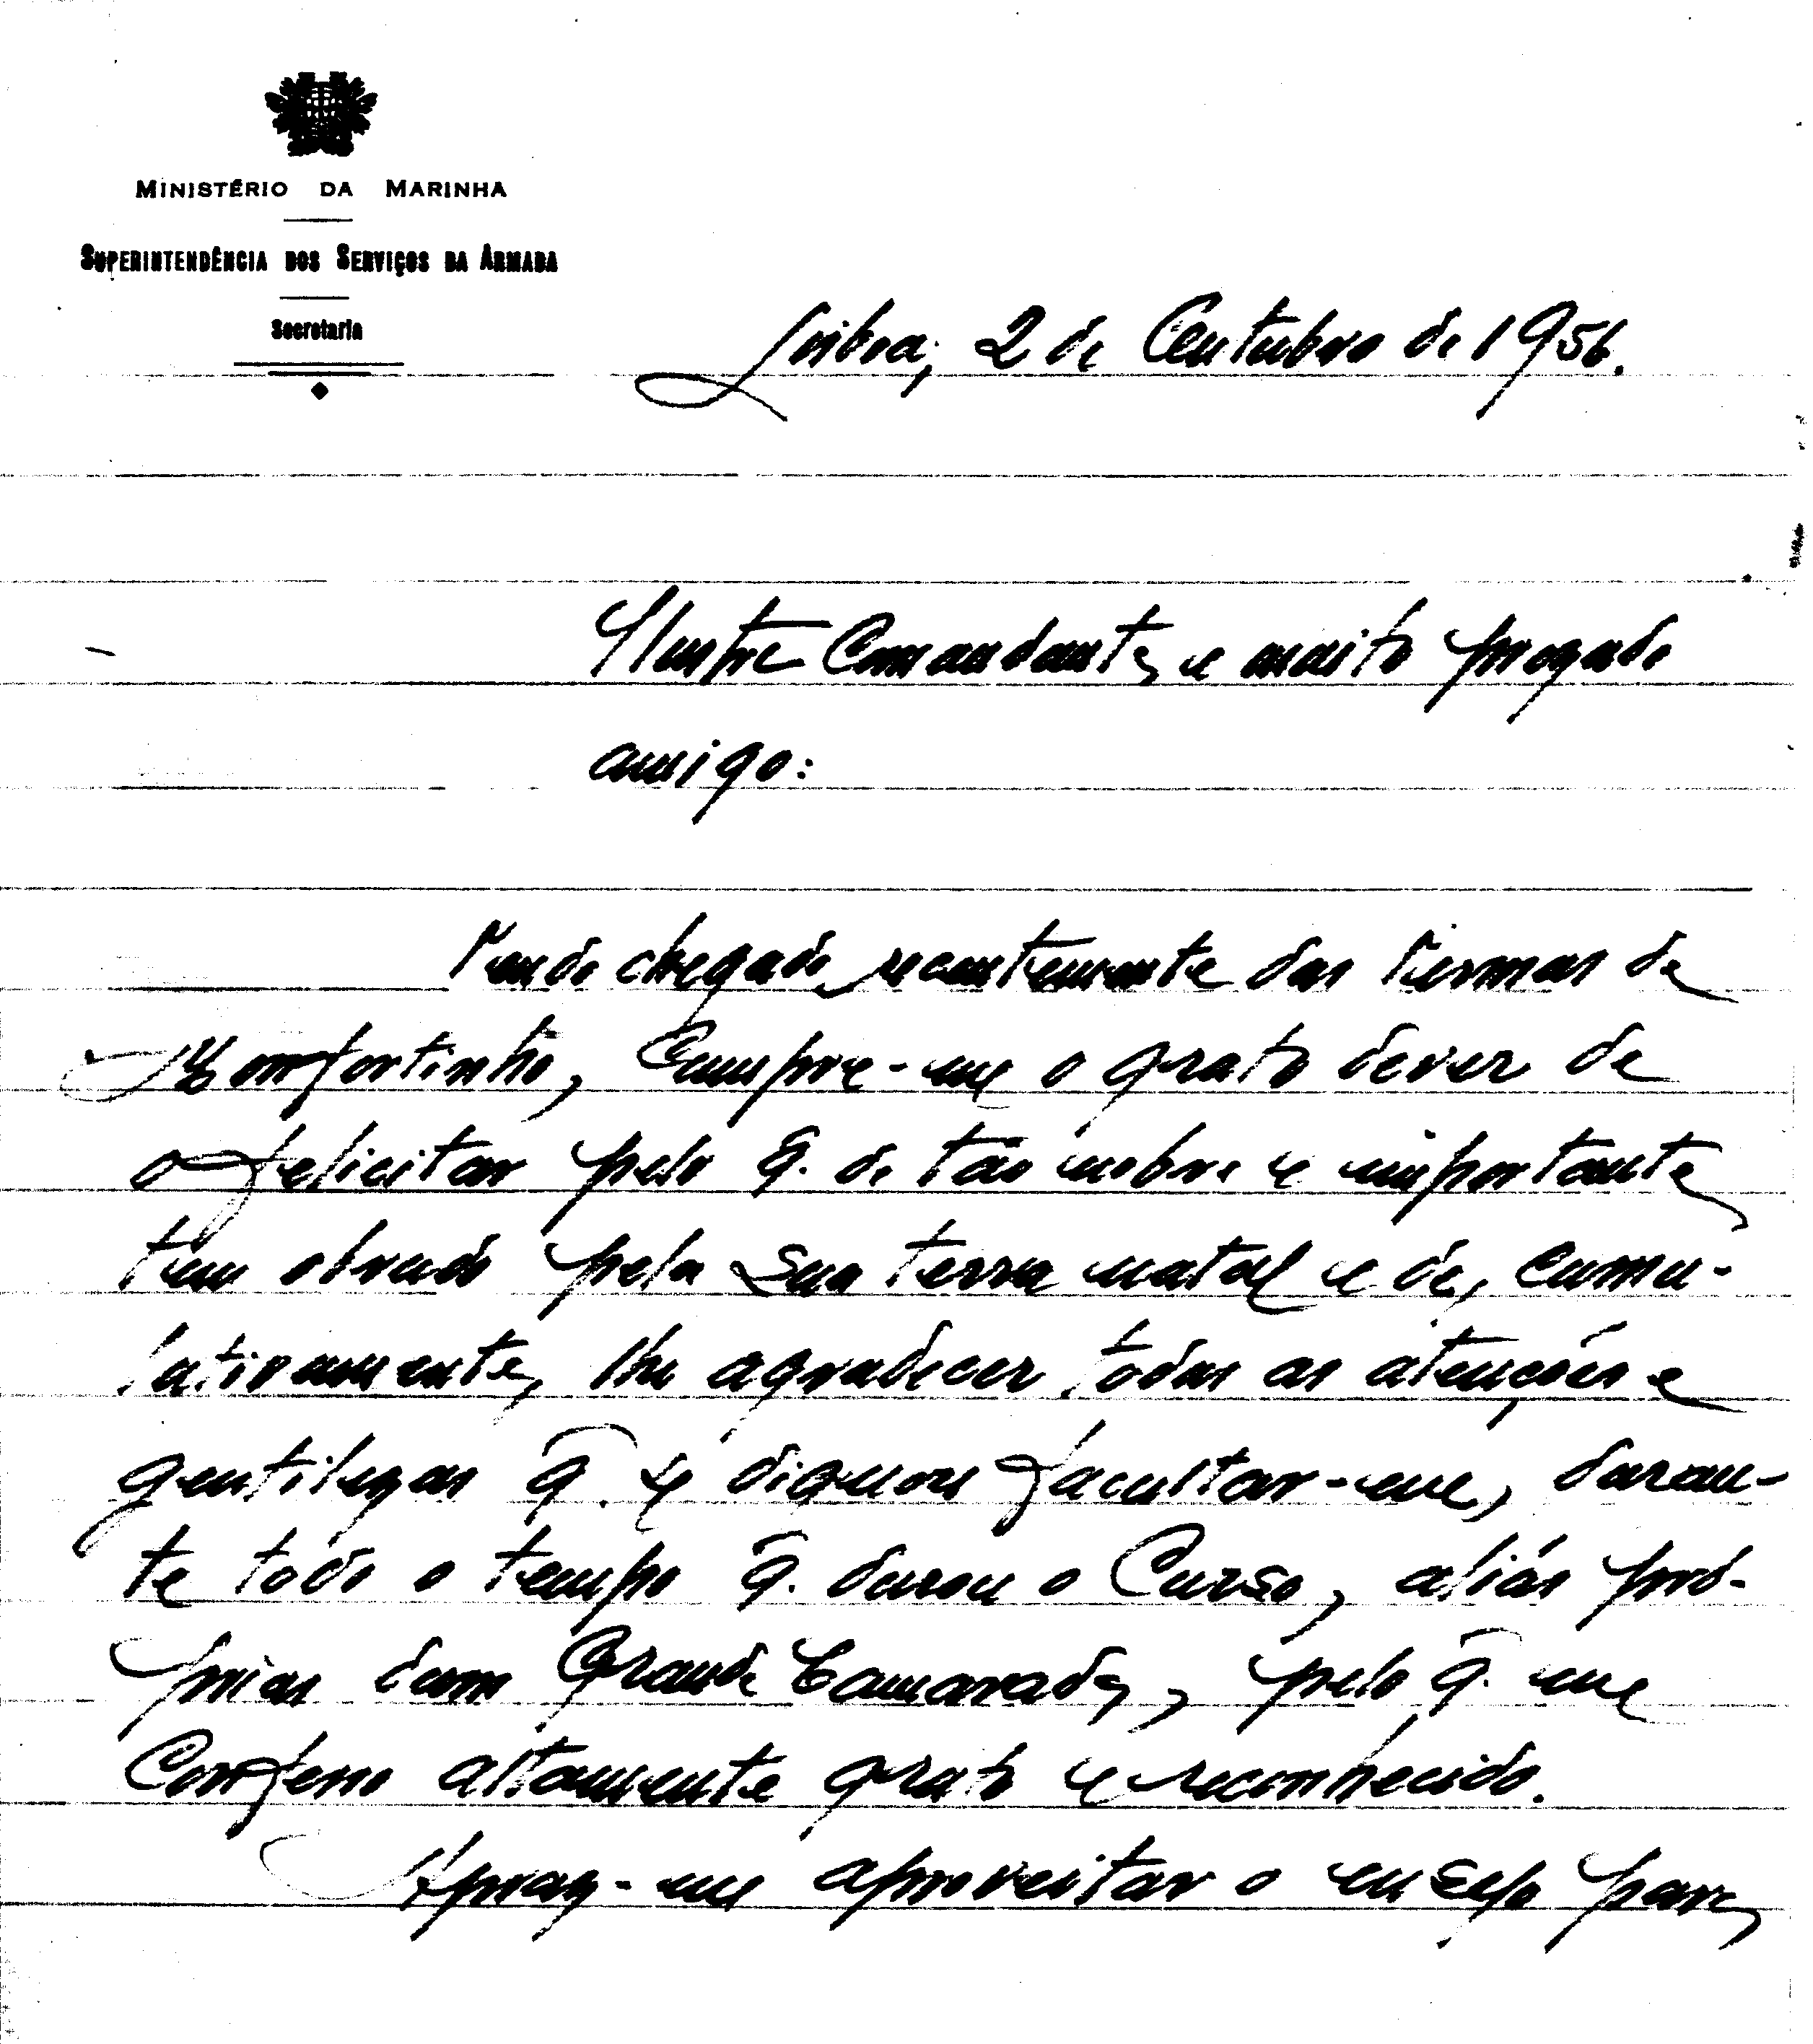 MINISTÉRIO DA MARINHA
SUPERINTENDÊNCIA DOS SERVIÇOS DA ARMADA
Secretaria
Lisboa, 2 de Outubro de 1956.
Ilustre Comandante e muito prezado
amigo:
Tendo chegado recentemente das Termas de
Monfortinho, Cumpre-me o grato dever de
o felicitar pelo q. de tão nobre e importante
tem obrado pela sua terra natal e de, cumu-
lativamente, lhe agradecer todas as atenções e
gentilezas q. se dignou facultar-me, duran-
te todo o tempo q. durou o Curso, aliás pró-
prias dum Grande Camarada, pelo q. me
Confesso altamente grato e reconhecido.
Apraz-me aproveitar o ensejo para